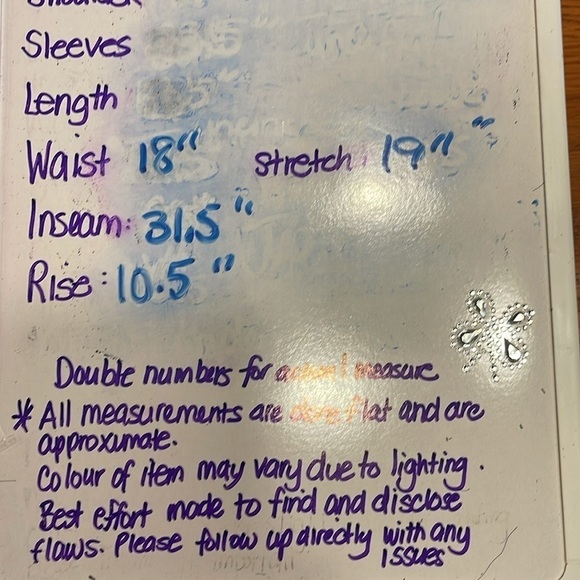 Sleeves
Length
Waist 18" stretch 19"
Inseam: 31.5"
Rise: 10.5"
Double numbers for measure
* All measurements are flat and are
approxumate.
Colour of item may vary due to lighting.
Best effort made to find and disclose
flaws. Please follow up directly with any
issues